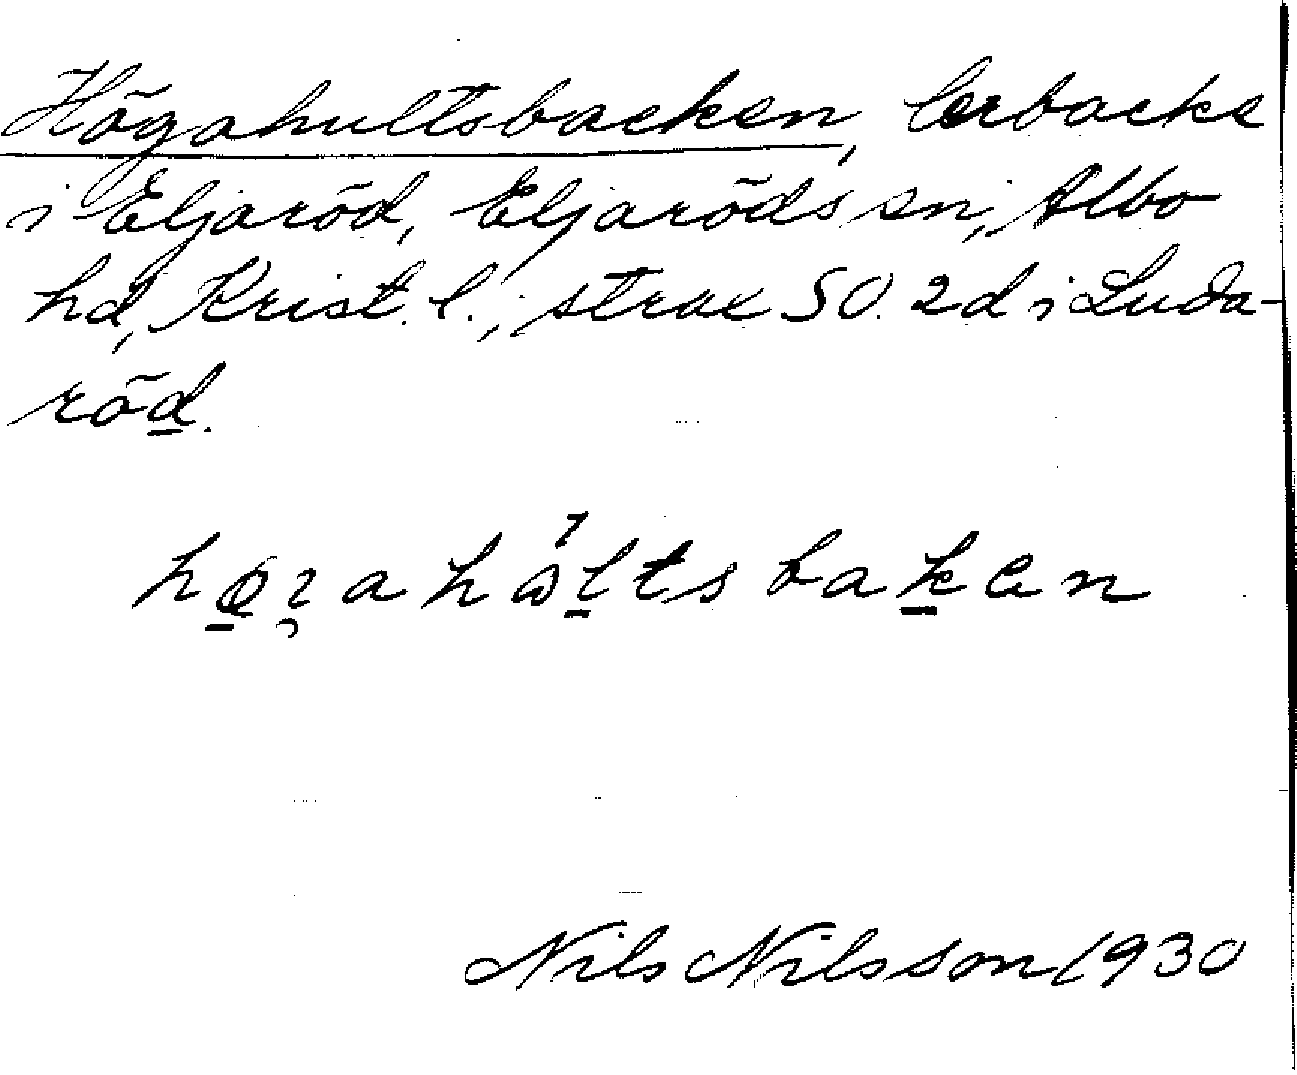 Högahultsbacken, lerbacke
i Eljaröd, Eljaröds sn, Albo
hd, Krist. l.; strax SO. 2d i Luda-
röd.
hø̱ꝛahͻltsbaḵen
Nils Nilsson 1930